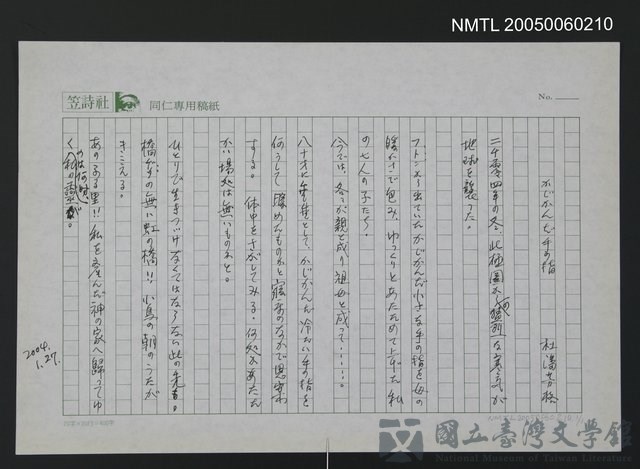 NMTL 20050060210
笠詩社
同仁専用稿紙
No.
かじかんだ手の指
杜潘芳格
二千零四年の冬、此極圏の猛烈な寒気が
地球を襲った。
フトンより出ていたかじかんだ小さな手の指を母の
暖かさで包み、ゆっくりとあたためて上げた私
の七人の子たち。
今では、各々が親と成り祖母と成って……。
八十才に手を差して、かじかんだ冷たい手の指を
何うして暖めたものかと寝床のなかで思案
する。体中をさがしてみる。何処もあたた
かい場処は無いものかと。
ひとりで生きつづけなくてはならない此の先を。
橋げたの無い虹の橋!! 小鳥の朝のうたが
きこえる。
あのある里!! 私を産んだ神の家へ歸ってゆ
く私の靈が。
2004.
1.27.
國立臺灣文學館
National Museum of Taiwan Literature